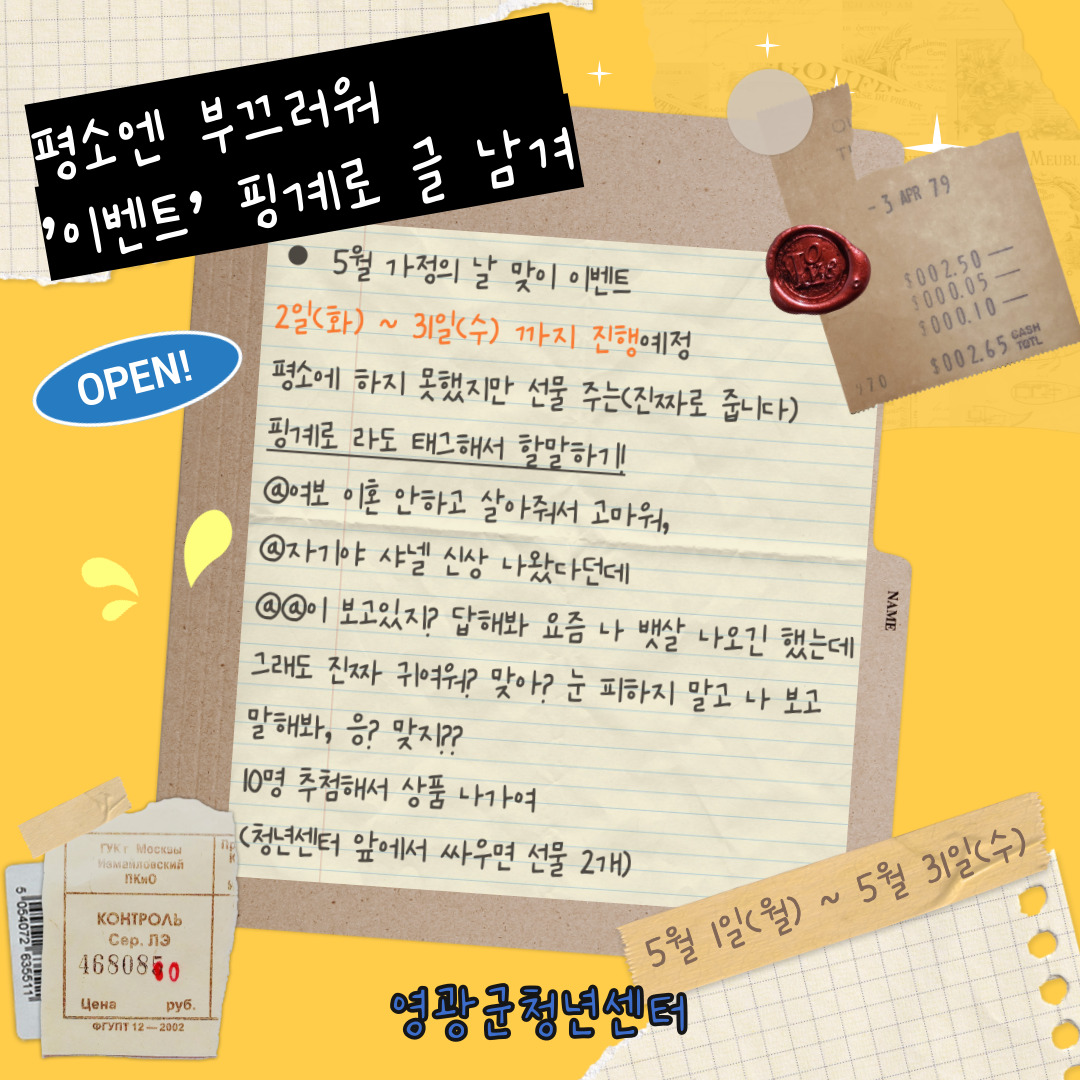 평소엔 부끄러워
'이벤트' 핑계로 글 남겨
- 3 APR 79
$002.50 —
$000.05 —
$000.10 —
$002.65 CASH TOTL
OPEN!
● 5월 가정의 날 맞이 이벤트
2일(화) ~ 31일(수) 까지 진행예정
평소에 하지 못했지만 선물 주는(진짜로 줍니다)
핑계로 라도 태그해서 할말하기!
@여보 이혼 안하고 살아줘서 고마워,
@자기야 샤넬 신상 나왔다던데
@@이 보고있지? 답해봐 요즘 나 뱃살 나오긴 했는데
그래도 진짜 귀여워? 맞아? 눈 피하지 말고 나 보고
말해봐, 응? 맞지??
10명 추첨해서 상품 나가여
(청년센터 앞에서 싸우면 선물 2개)
NAME
5월 1일(월) ~ 5월 31일(수)
ГУК г Москвы
Измайловский
ПКиО
КОНТРОЛЬ
Сер. ЛЭ
Цена руб.
ФГУПТ 12 — 2002
5 054072 635511
영광군청년센터